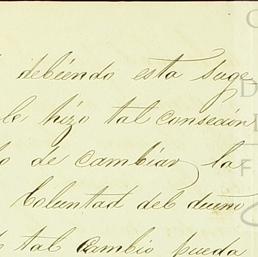 debiendo esta suge
le hizo tal consecion
de cambiar la
Voluntad del dueño
tal cambio pueda